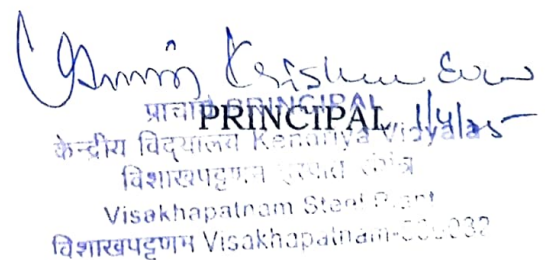 प्राचार्य PRINCIPAL
PRINCIPAL 1/4/25
केन्द्रीय विद्यालय Kendriya Vidyalaya
विशाखपट्टणम इस्पात
Visakhapatnam Steel Plant
विशाखपट्टणम Visakhapatnam-530032